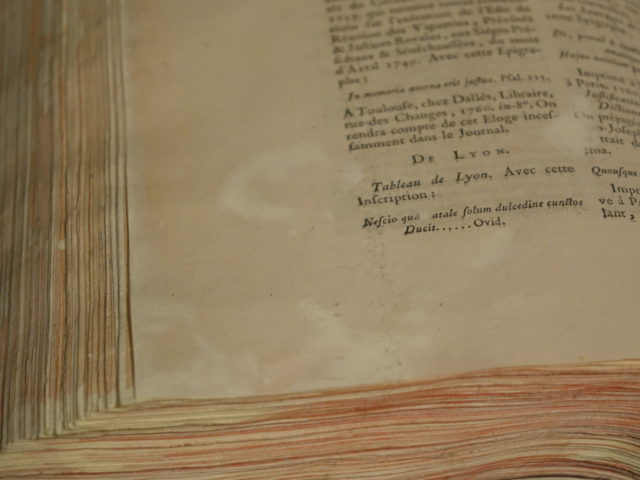 1755. qui
tions sur l'exécution de l'Edit de
Réunion des Vigueries, Prévôtés
& Justices Royales, aux Siéges Pré-
sidiaux & Sénéchaussées, du mois
d'Avril 1749. Avec cette Epigra-
phe :
In memoria æterna erit justus. Psal. 111.
A Toulouse, chez Dallés, Libraire,
rue des Changes, 1760. in-8°. On
rendra compte de cet Eloge inces-
samment dans le Journal.
DE LYON.
Tableau de Lyon. Avec cette
Inscription :
Nescio quâ atale solum dulcedine cunctos
Ducit...... Ovid.
Imprimé
à Paris, 176
Justificati
Diction
On préjug
n-Josep
trait de
ina.
Quousque
Impr
ve à Pa
lant,